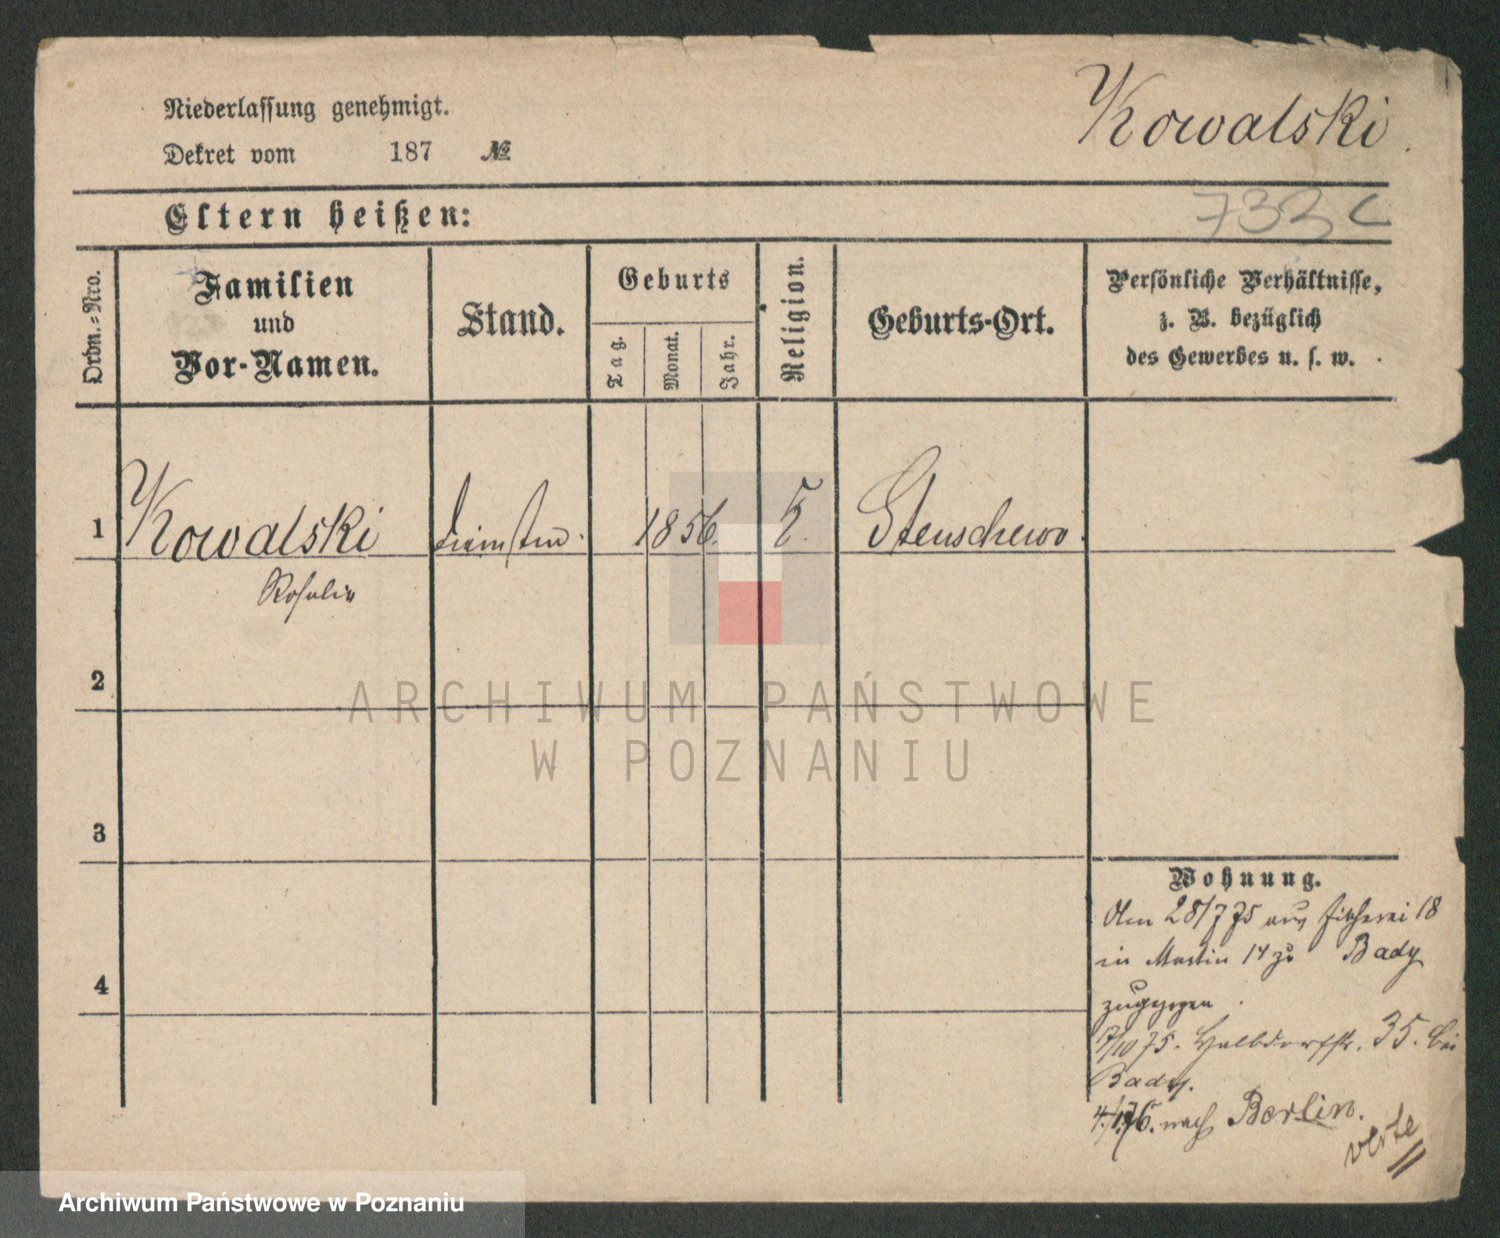 Niederlassung genehmigt.
Kowalski
Dekret vom 187 №
Eltern heißen:
733 c
Ordn.-Nro.
Familien
und
Vor-Namen.
Stand.
Geburts
Tag.
Monat.
Jahr.
Religion.
Geburts-Ort.
Persönliche Verhältnisse,
z. B. bezüglich
des Gewerbes u. s. w.
1 Kowalski 1856. Stenschewo.
Rosalie
2
ARCHIWUM PAŃSTWOWE
W POZNANIU
3
Wohnung.
Am 28/7 75 aus Fischerei 18
in Martin 14 zu Bady
zugezogen.
7/10 75. Halbdorfstr. 35. bei
Bady.
76. nach Berlin.
4
verte
Archiwum Państwowe w Poznaniu